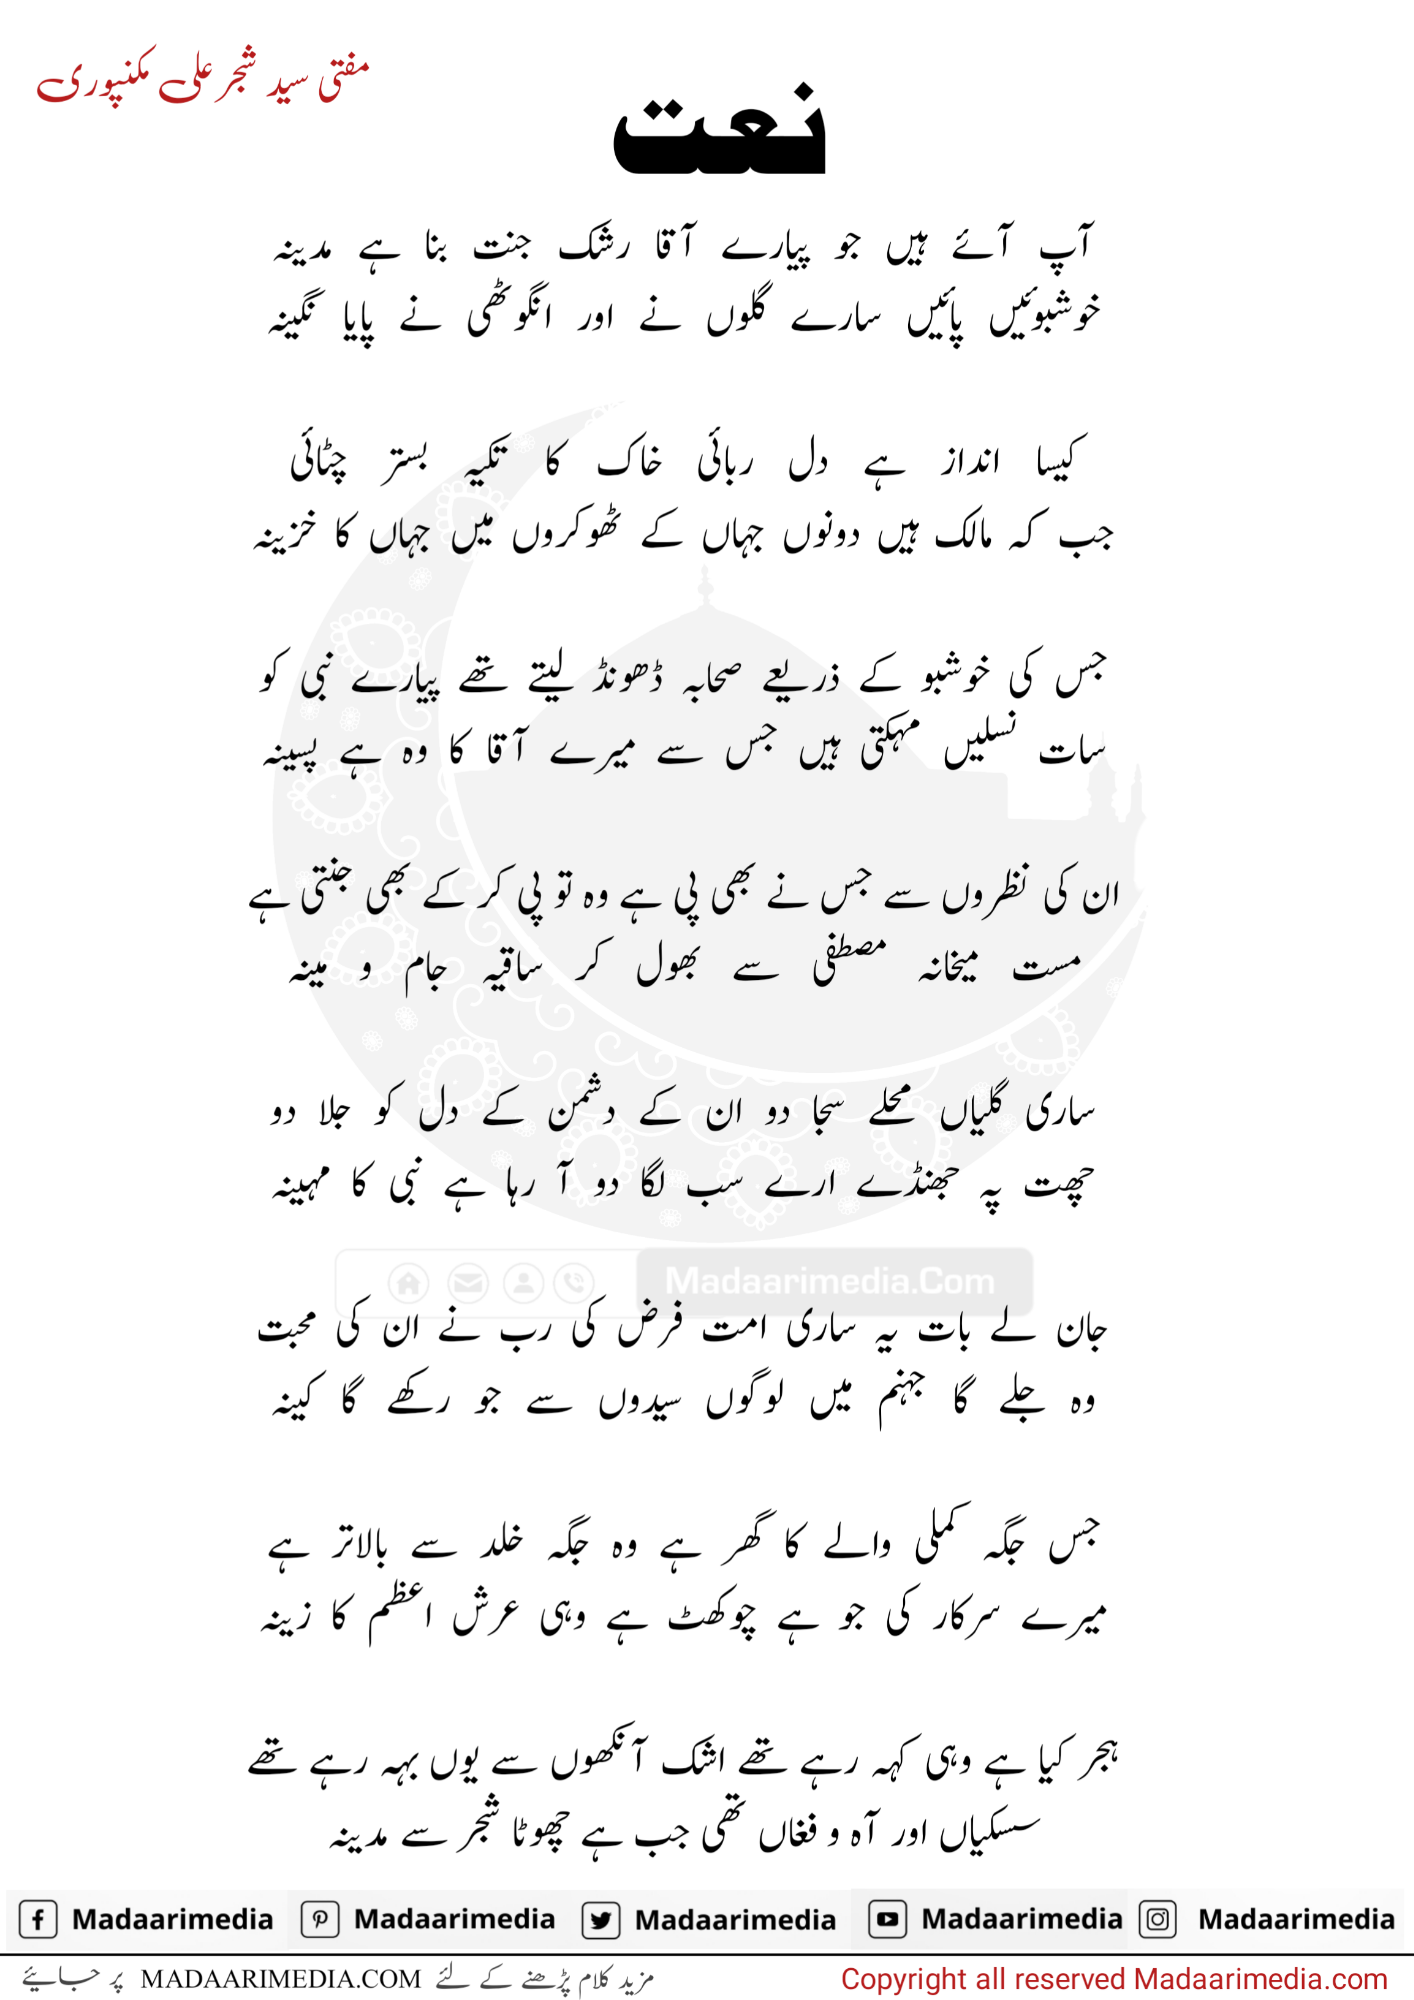 مفتی سید شجر علی مکنپوری
نعت
آپ آئے ہیں جو پیارے آقا رشک جنت بنا ہے مدینہ
خوشبوئیں پائیں سارے گلوں نے اور انگوٹھی نے پایا نگینہ
کیسا انداز ہے دل ربائی خاک کا تکیہ بستر چٹائی
جب کہ مالک ہیں دونوں جہاں کے ٹھوکروں میں جہاں کا خزینہ
جس کی خوشبو کے ذریعے صحابہ ڈھونڈ لیتے تھے پیارے نبی کو
سات نسلیں مہکتی ہیں جس سے میرے آقا کا وہ ہے پسینہ
ان کی نظروں سے جس نے بھی پی ہے وہ تو پی کر کے بھی جنتی ہے
مست میخانہ مصطفی سے بھول کر ساقیہ جام و مینہ
ساری گلیاں محلے سجا دو ان کے دشمن کے دل کو جلا دو
چھت پہ جھنڈے ارے سب لگا دو آ رہا ہے نبی کا مہینہ
Madaarimedia.Com
جان لے بات یہ ساری امت فرض کی رب نے ان کی محبت
وہ جلے گا جہنم میں لوگوں سیدوں سے جو رکھے گا کینہ
جس جگہ کملی والے کا گھر ہے وہ جگہ خلد سے بالاتر ہے
میرے سرکار کی جو ہے چوکھٹ ہے وہی عرش اعظم کا زینہ
ہجر کیا ہے وہی کہہ رہے تھے اشک آنکھوں سے یوں بہہ رہے تھے
سسکیاں اور آہ و فغاں تھی جب ہے چھوٹا شجر سے مدینہ
Madaarimedia Madaarimedia Madaarimedia Madaarimedia Madaarimedia
مزید کلام پڑھنے کے لئے MADAARIMEDIA.COM پر جائیے
Copyright all reserved Madaarimedia.com